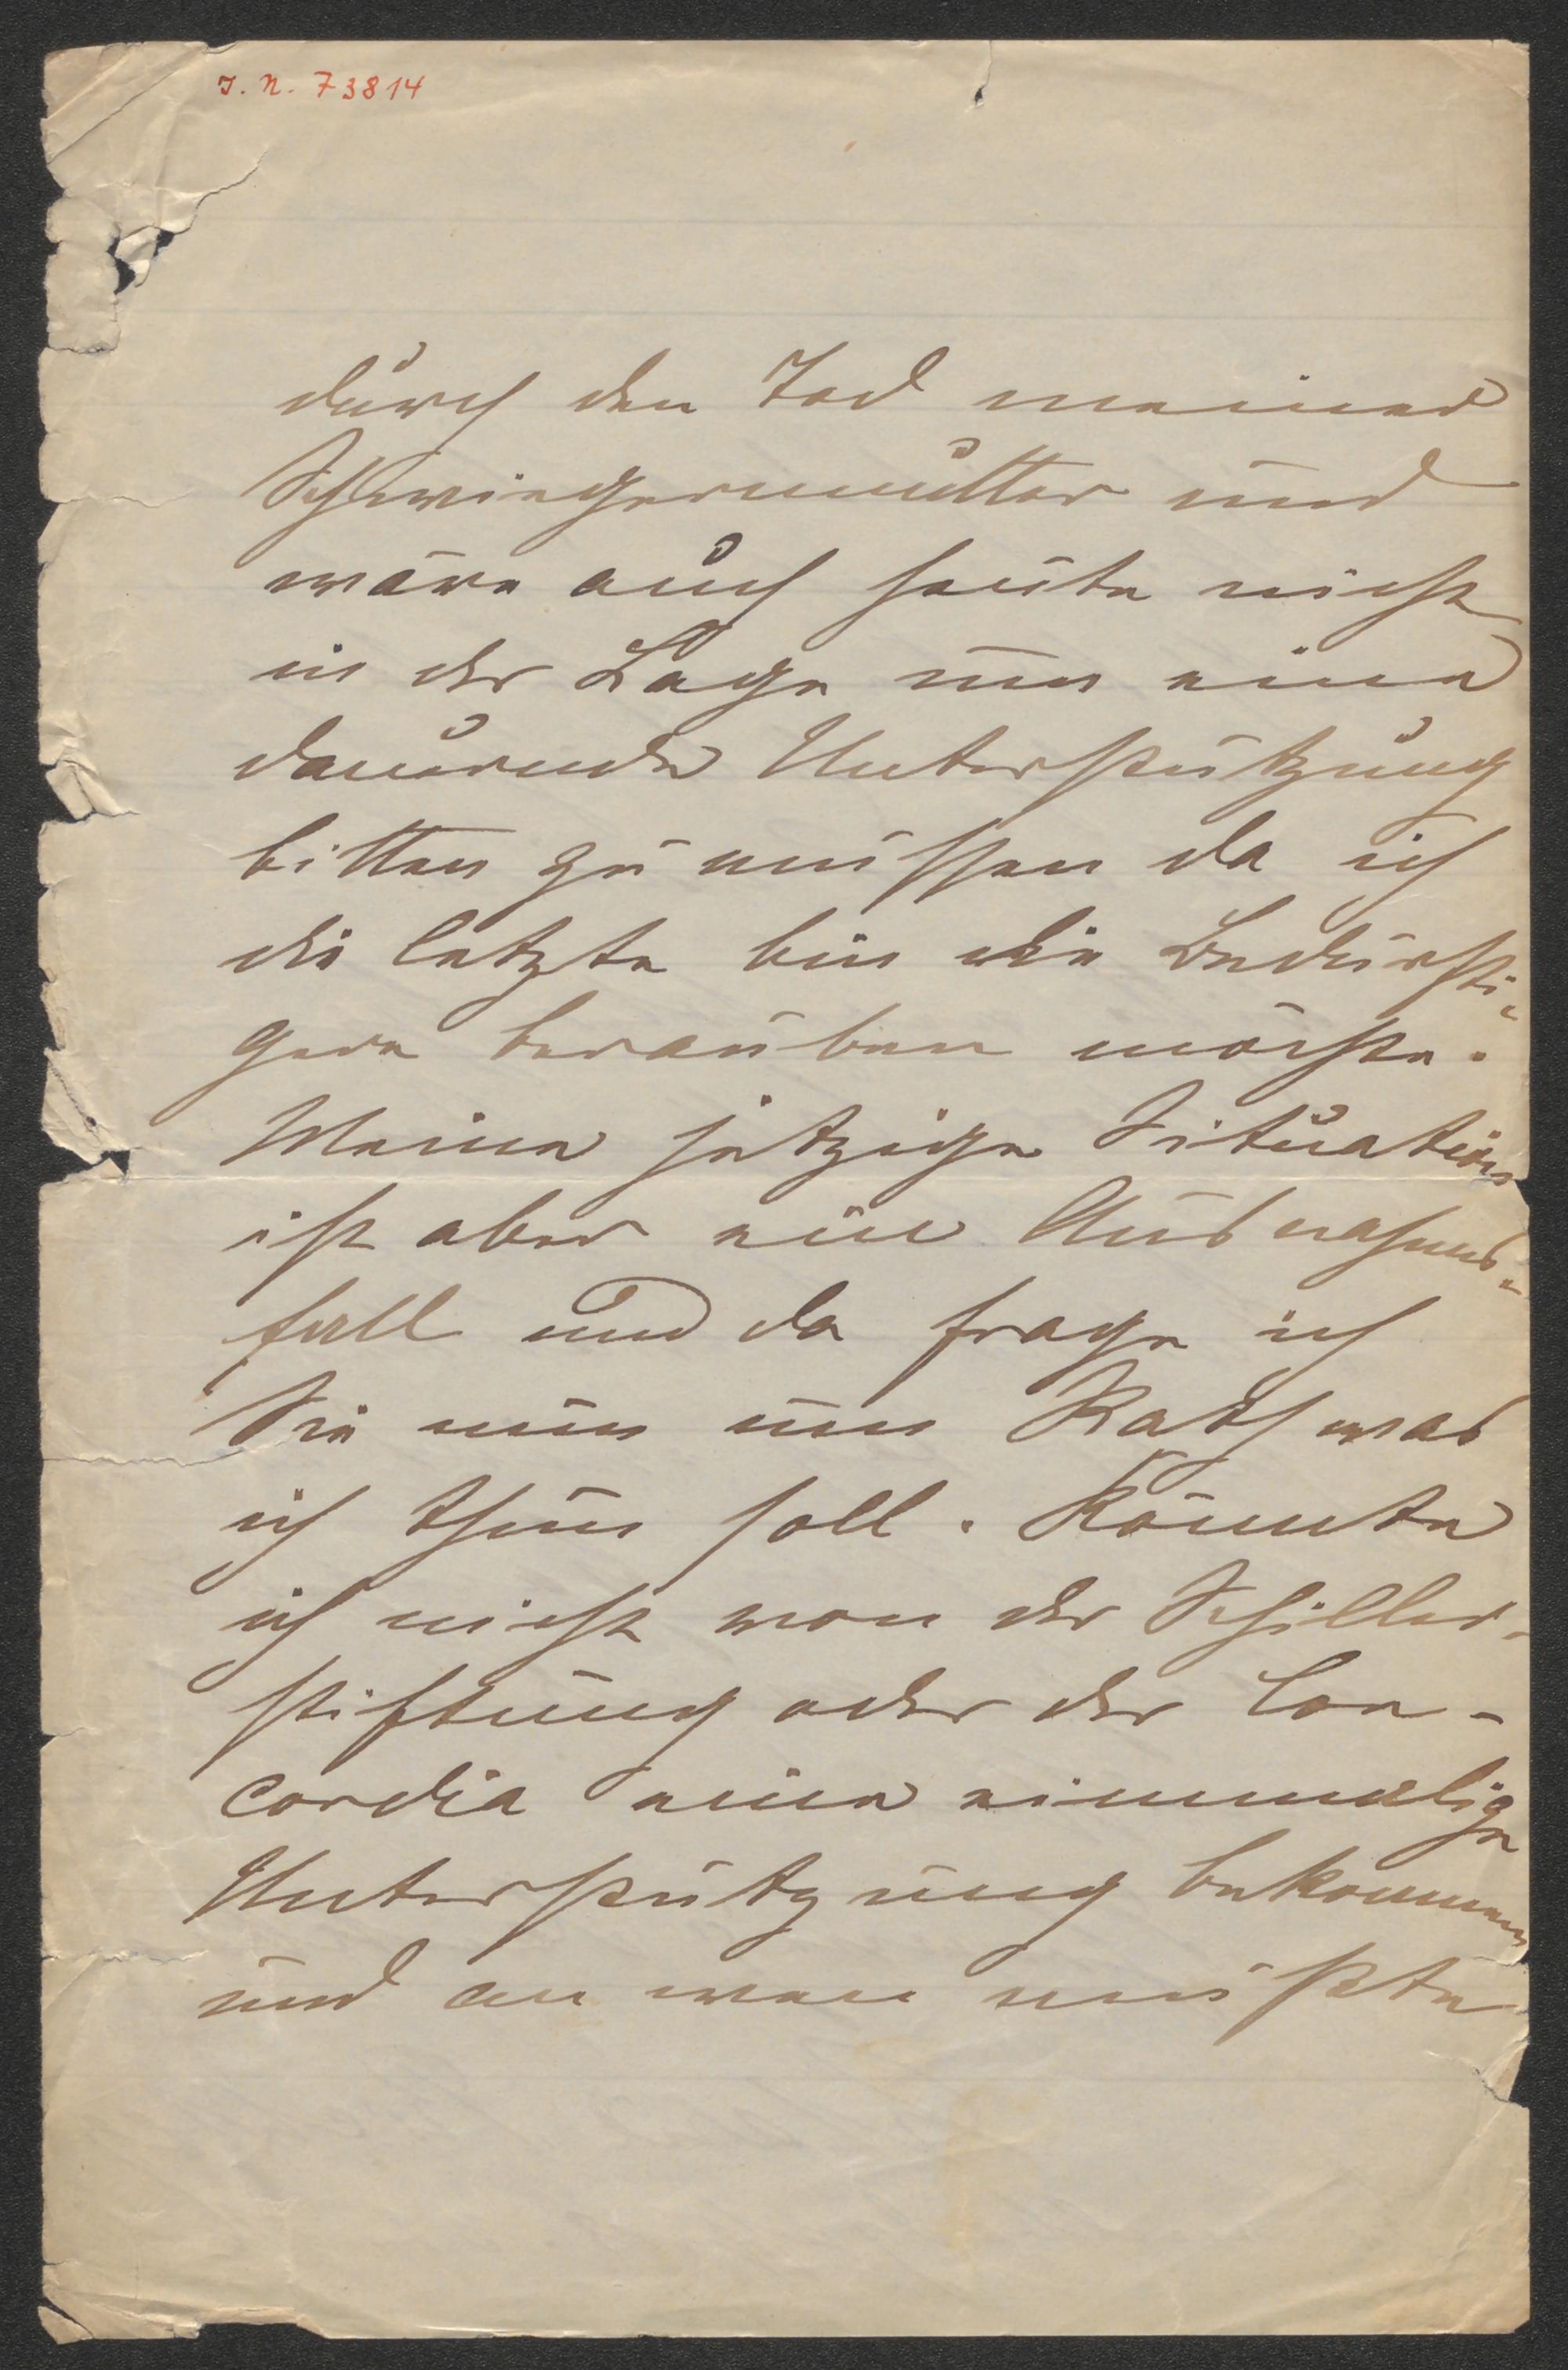 J. N. 73814
durch den Tod meiner
Schwiegermutter und
wäre auch heute nicht
in der Lage um eine
dauernde Unterstützung
bitten zu müssen da ich
die letzte bin die Bedürfti-
gere berauben möchte.
Meine jetzige Situation
ist aber ein Ausnahms-
fall und da frage ich
Sie nun um Rath was
ich thun soll. Könnte
ich nicht von der Schiller-
stiftung oder der Con-
cordia eine einmalige
Unterstützung bekommen
und an wen müßte